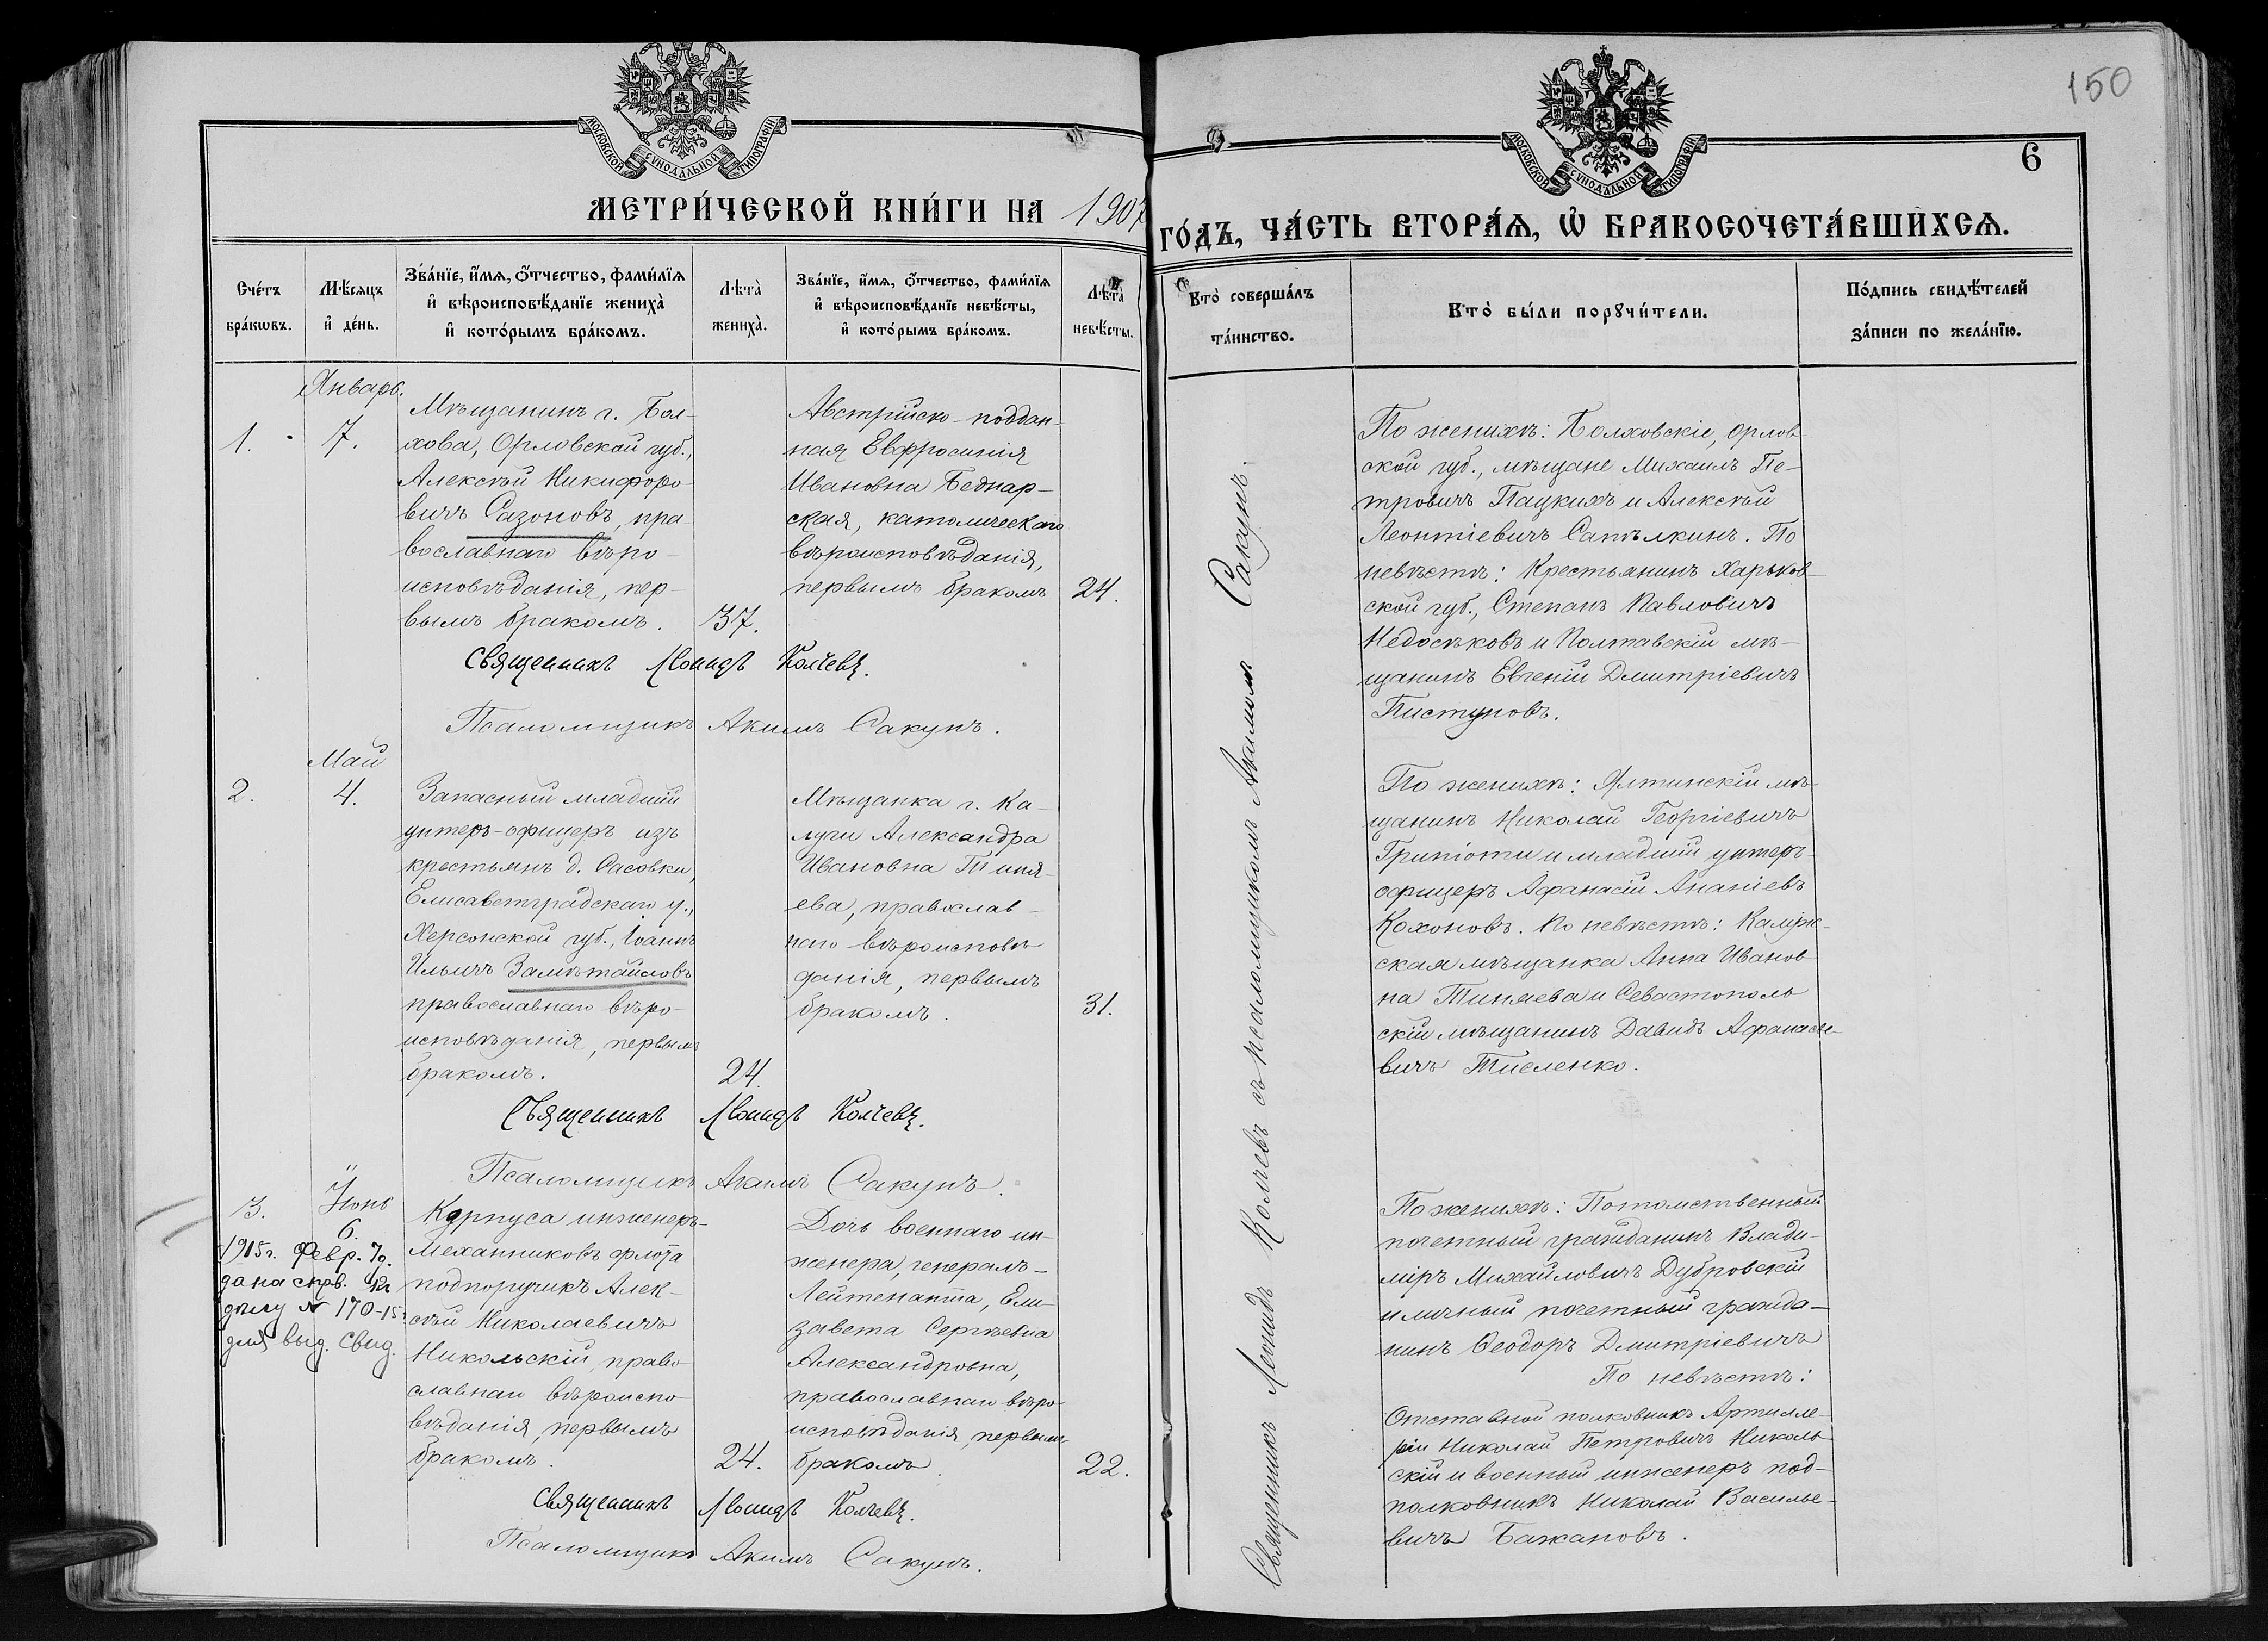 150
6
МОСКОВСКОЙ СѴНОДАЛЬНОЙ ТИПОГРАФІИ
МОСКОВСКОЙ СѴНОДАЛЬНОЙ ТИПОГРАФІИ
МЕТРИ́ЧЕСКОЙ КНИ́ГИ НА 1907
ГО́ДЪ, ЧА́СТЬ ВТОРА́Ѧ, Ѡ҆ БРАКОСОЧЕТА́ВШИХСѦ.
Сче́тъ
бра́кѡвъ.
Мѣ́сяцъ
и҆ де́нь.
Зва́нїе, и҆́мѧ, ѻ҆́тчество, фами́лїѧ
и҆ вѣроисповѣ́данїе женихà
и҆ кото́рымъ бра́комъ.
Лѣ́та̀
женихà.
Зва́нїе, и҆́мѧ, ѻ҆́тчество, фами́лїѧ
и҆ вѣроисповѣ́данїе невѣ́сты,
и҆ кото́рымъ бра́комъ.
Лѣ́та̀
невѣ́сты.
Кто̀ соверша́лъ
та́инство.
Кто̀ бы́ли порꙋчи́тели.
По́дпись свидѣ́телей
за́писи по жела́нїю.
Январь.
1.
7.
Мѣщанинъ г. Бол-
хова, Орловской губ.,
Алексѣй Никифоро-
вичъ Сазоновъ, пра-
вославнаго вѣро-
исповѣданія, пер-
вымъ бракомъ.
37.
Австрійско-поддан-
ная Евфросинія
Ивановна Беднар-
ская, католическаго
вѣроисповѣданія,
первымъ бракомъ
24.
Священникъ Леонидъ Колчевъ.
Псаломщикъ Акимъ Сакунъ.
По женихѣ: Болховскіе, Орлов-
ской губ., мѣщане Михаилъ Пе-
тровичъ Пацкихъ и Алексѣй
Леонтіевичъ Сатѣлкинъ. По
невѣстѣ: Крестьянинъ Харьков-
ской губ., Степанъ Павловичъ
Недосѣковъ и Полтавскій мѣ-
щанинъ Евгеній Дмитріевичъ
Пистуновъ.
Май
2.
4.
Запасный младшій
унтеръ-офицеръ изъ
крестьянъ д. Сасовки,
Елисаветградскаго у.,
Херсонской губ., Іоаннъ
Ильичъ Замѣтайловъ
православнаго вѣро-
исповѣданія, первымъ
бракомъ.
24.
Мѣщанка г. Ка-
луги Александра
Ивановна Тиня-
ева, православ-
наго вѣроисповѣ-
данія, первымъ
бракомъ.
31.
Священникъ Леонидъ Колчевъ.
Псаломщикъ Акимъ Сакунъ.
По женихѣ: Ялтинскій мѣ-
щанинъ Николай Георгіевичъ
Грипіоти и младшій унтеръ-
офицеръ Афанасій Ананіевъ
Кохоновъ. По невѣстѣ: Калуж-
ская мѣщанка Анна Иванов-
на Тиняева и Севастополь-
скій мѣщанинъ Давидъ Афанасье-
вичъ Тисленко.
3.
Іюнь
6.
1915 г. Февр. 7 д.
дана спрв. на
дѣлу № 170-15 г.
для выд. свид.
Корпуса инженеръ-
механиковъ флота
подпоручикъ Алек-
сѣй Николаевичъ
Никольскій, право-
славнаго вѣроиспо-
вѣданія, первымъ
бракомъ.
24.
Дочь военнаго ин-
женера, генералъ-
Лейтенанта, Ели-
завета Сергѣевна
Александровна,
православнаго вѣро-
исповѣданія, первымъ
бракомъ.
22.
Священникъ Леонидъ Колчевъ.
Псаломщикъ Акимъ Сакунъ.
По женихѣ: Потомственный
почетный гражданинъ Влади-
міръ Михайловичъ Дубровскій
и личный почетный гражда-
нинъ Ѳеодоръ Дмитріевичъ
По невѣстѣ:
Отставной полковникъ Артилле-
ріи Николай Петровичъ Николь-
скій и военный инженеръ под-
полковникъ Николай Василье-
вичъ Бажановъ.
Священникъ Леонидъ Колчевъ съ псаломщикомъ Акимомъ Сакунъ.